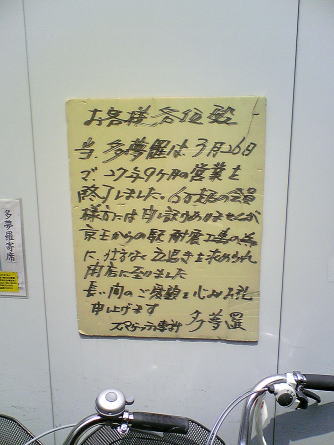 お客様各位殿
当、多夢羅は3月26日
で、27年9ヶ月の営業を
終了しました。6万超の会員
様方には申し訳ありませんが
京王からの駅耐震工事の為
に、仕方なく立退きを求められ
閉店に至りました
長い間のご愛顧を心より お礼
申し上げます
多夢羅
多夢羅寄席